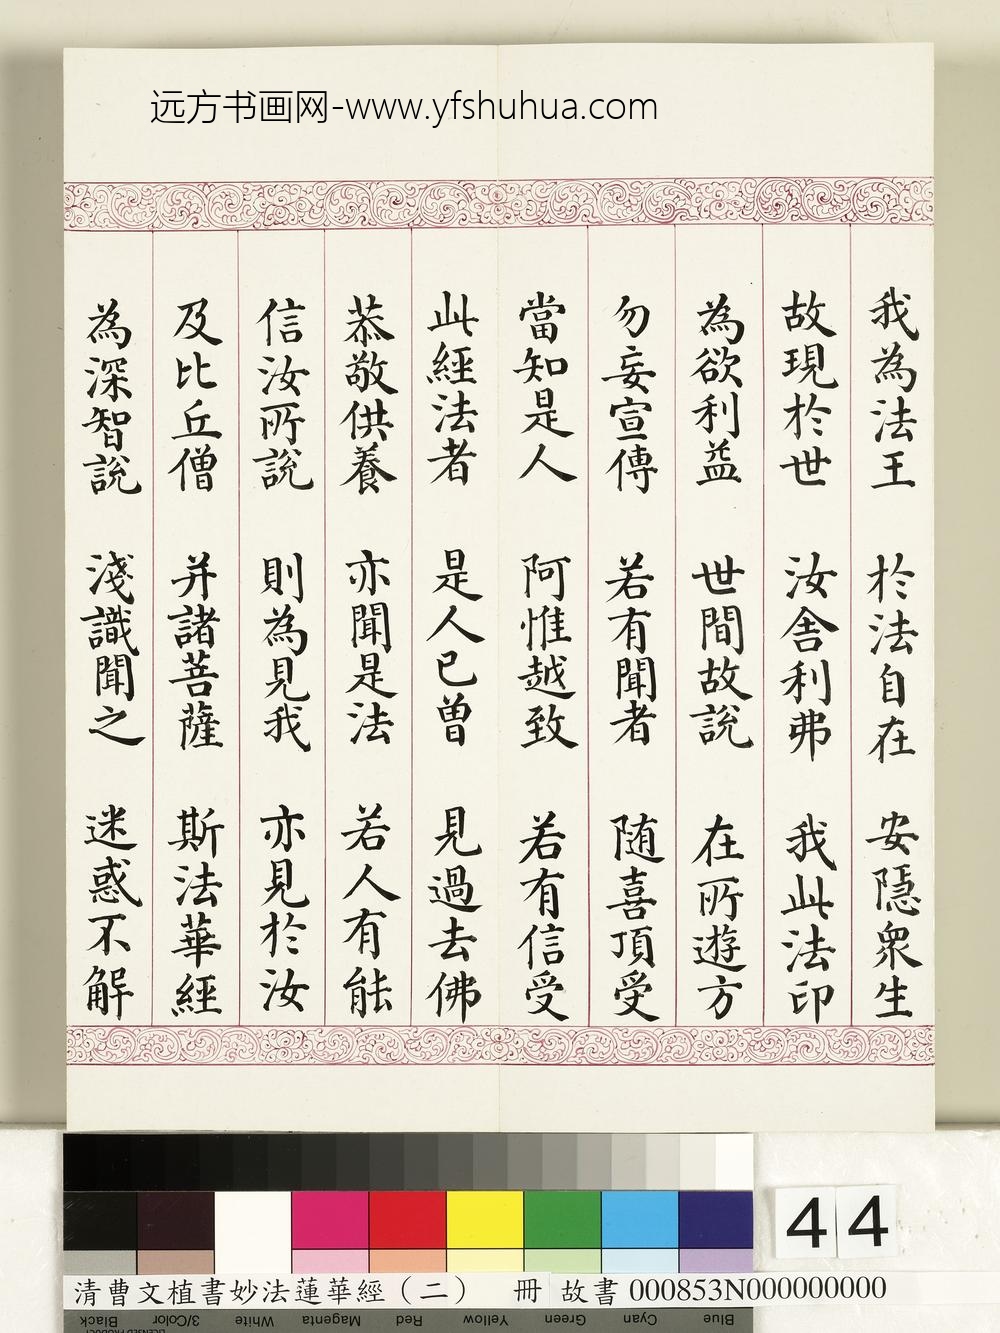 远方书画网-www.yfshuhua.com
我為法王 於法自在 安隱衆生
故現於世 汝舍利弗 我此法印
為欲利益 世間故說 在所遊方
勿妄宣傳 若有聞者 随喜頂受
當知是人 阿惟越致 若有信受
此經法者 是人已曽 見過去佛
恭敬供養 亦聞是法 若人有能
信汝所說 則為見我 亦見於汝
及比丘僧 并諸菩薩 斯法華經
為深智說 淺識聞之 迷惑不解
44
清曹文植書妙法蓮華經（二） 冊 故書 000853N000000000
Black 3/Color White Magenta Red Yellow Green Cyan Blue